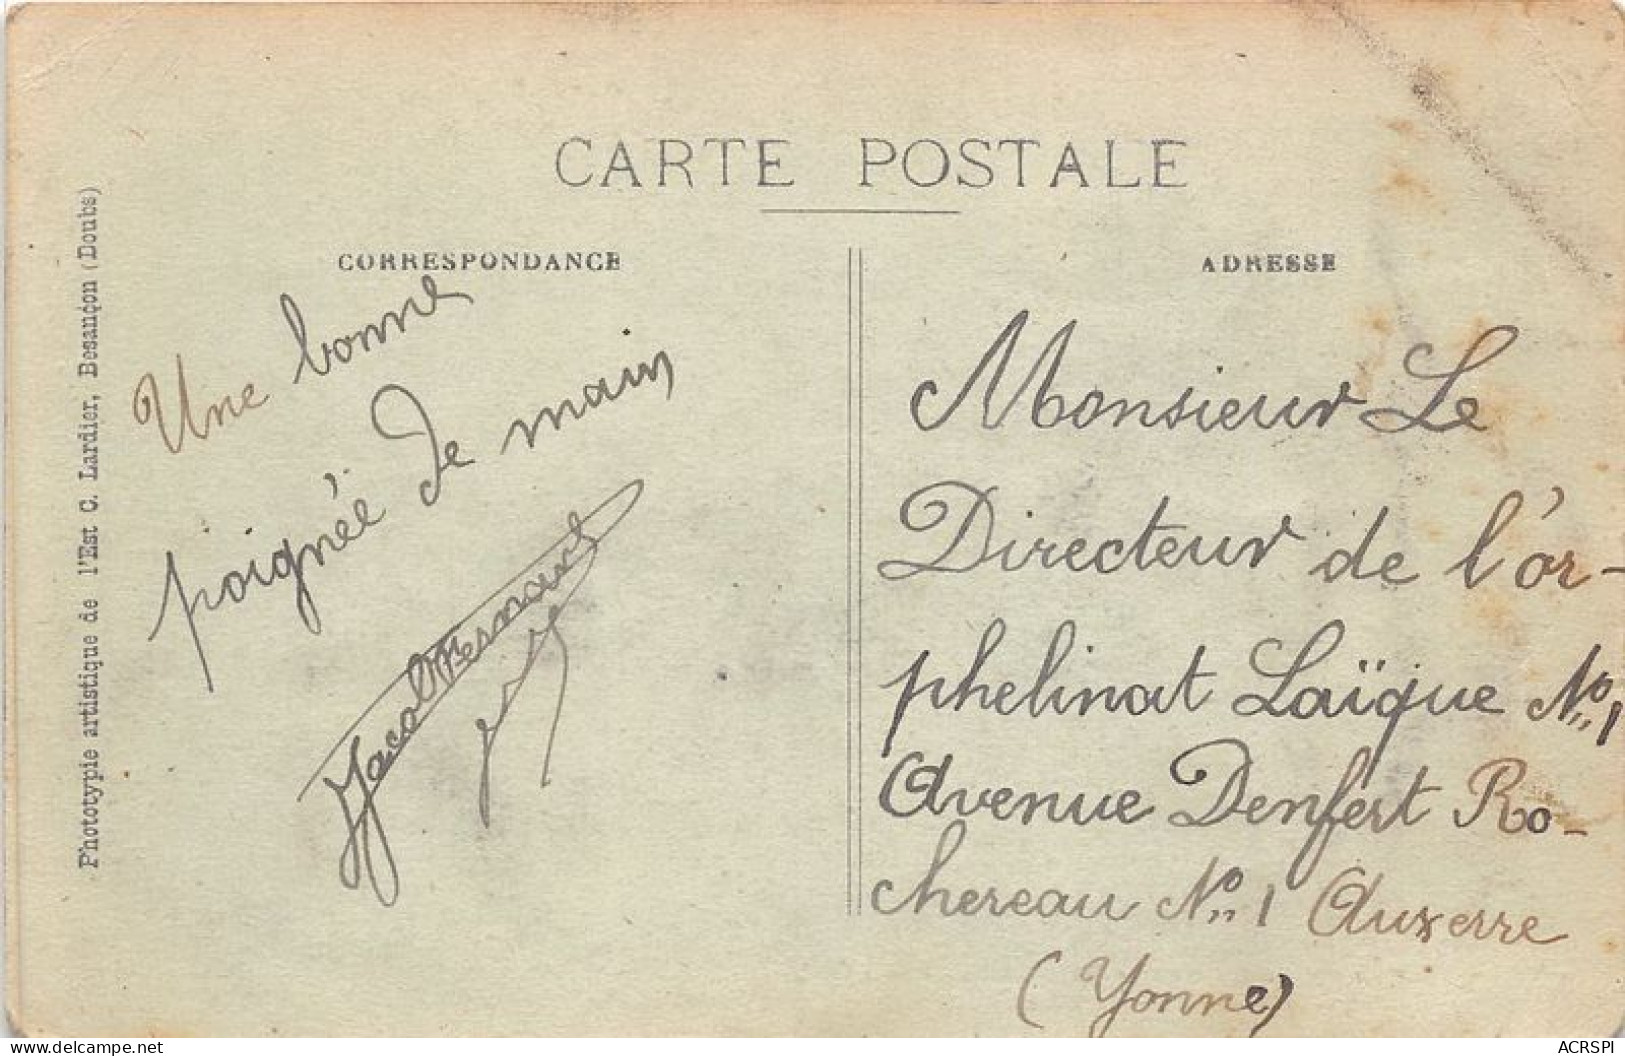 CARTE POSTALE
CORRESPONDANCE
Une bonne
poignée de main
Jacob Fernand
ADRESSE
Monsieur Le
Directeur de l'or-
phelinat Laïque No 1
Avenue Denfert Ro-
chereau No 1 Auxerre
(Yonne)
Phototypie artistique de l'Est C. Lardier, Besançon (Doubs)
www.delcampe.net
ACRSPI